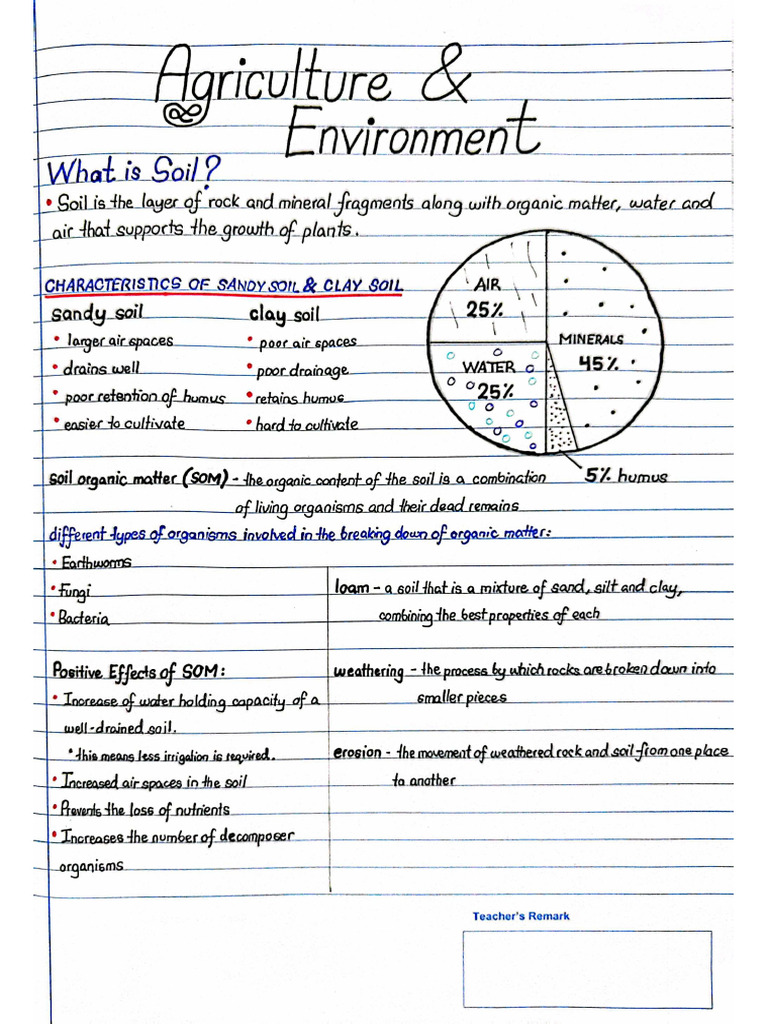 Agriculture &
Environment
What is Soil?
• Soil is the layer of rock and mineral fragments along with organic matter, water and
air that supports the growth of plants.
CHARACTERISTICS OF SANDY SOIL & CLAY SOIL
sandy soil
• larger air spaces
• drains well
• poor retention of humus
• easier to cultivate
clay soil
• poor air spaces
• poor drainage
• retains humus
• hard to cultivate
AIR
25%
MINERALS
45%
WATER
25%
5% humus
soil organic matter (SOM) - the organic content of the soil is a combination
of living organisms and their dead remains
different types of organisms involved in the breaking down of organic matter:
• Earthworms
• Fungi
• Bacteria
Positive Effects of SOM:
• Increase of water holding capacity of a
well-drained soil.
*this means less irrigation is required.
• Increased air spaces in the soil
• Prevents the loss of nutrients
• Increases the number of decomposer
organisms
loam - a soil that is a mixture of sand, silt and clay,
combining the best properties of each
weathering - the process by which rocks are broken down into
smaller pieces
erosion - the movement of weathered rock and soil from one place
to another
Teacher's Remark